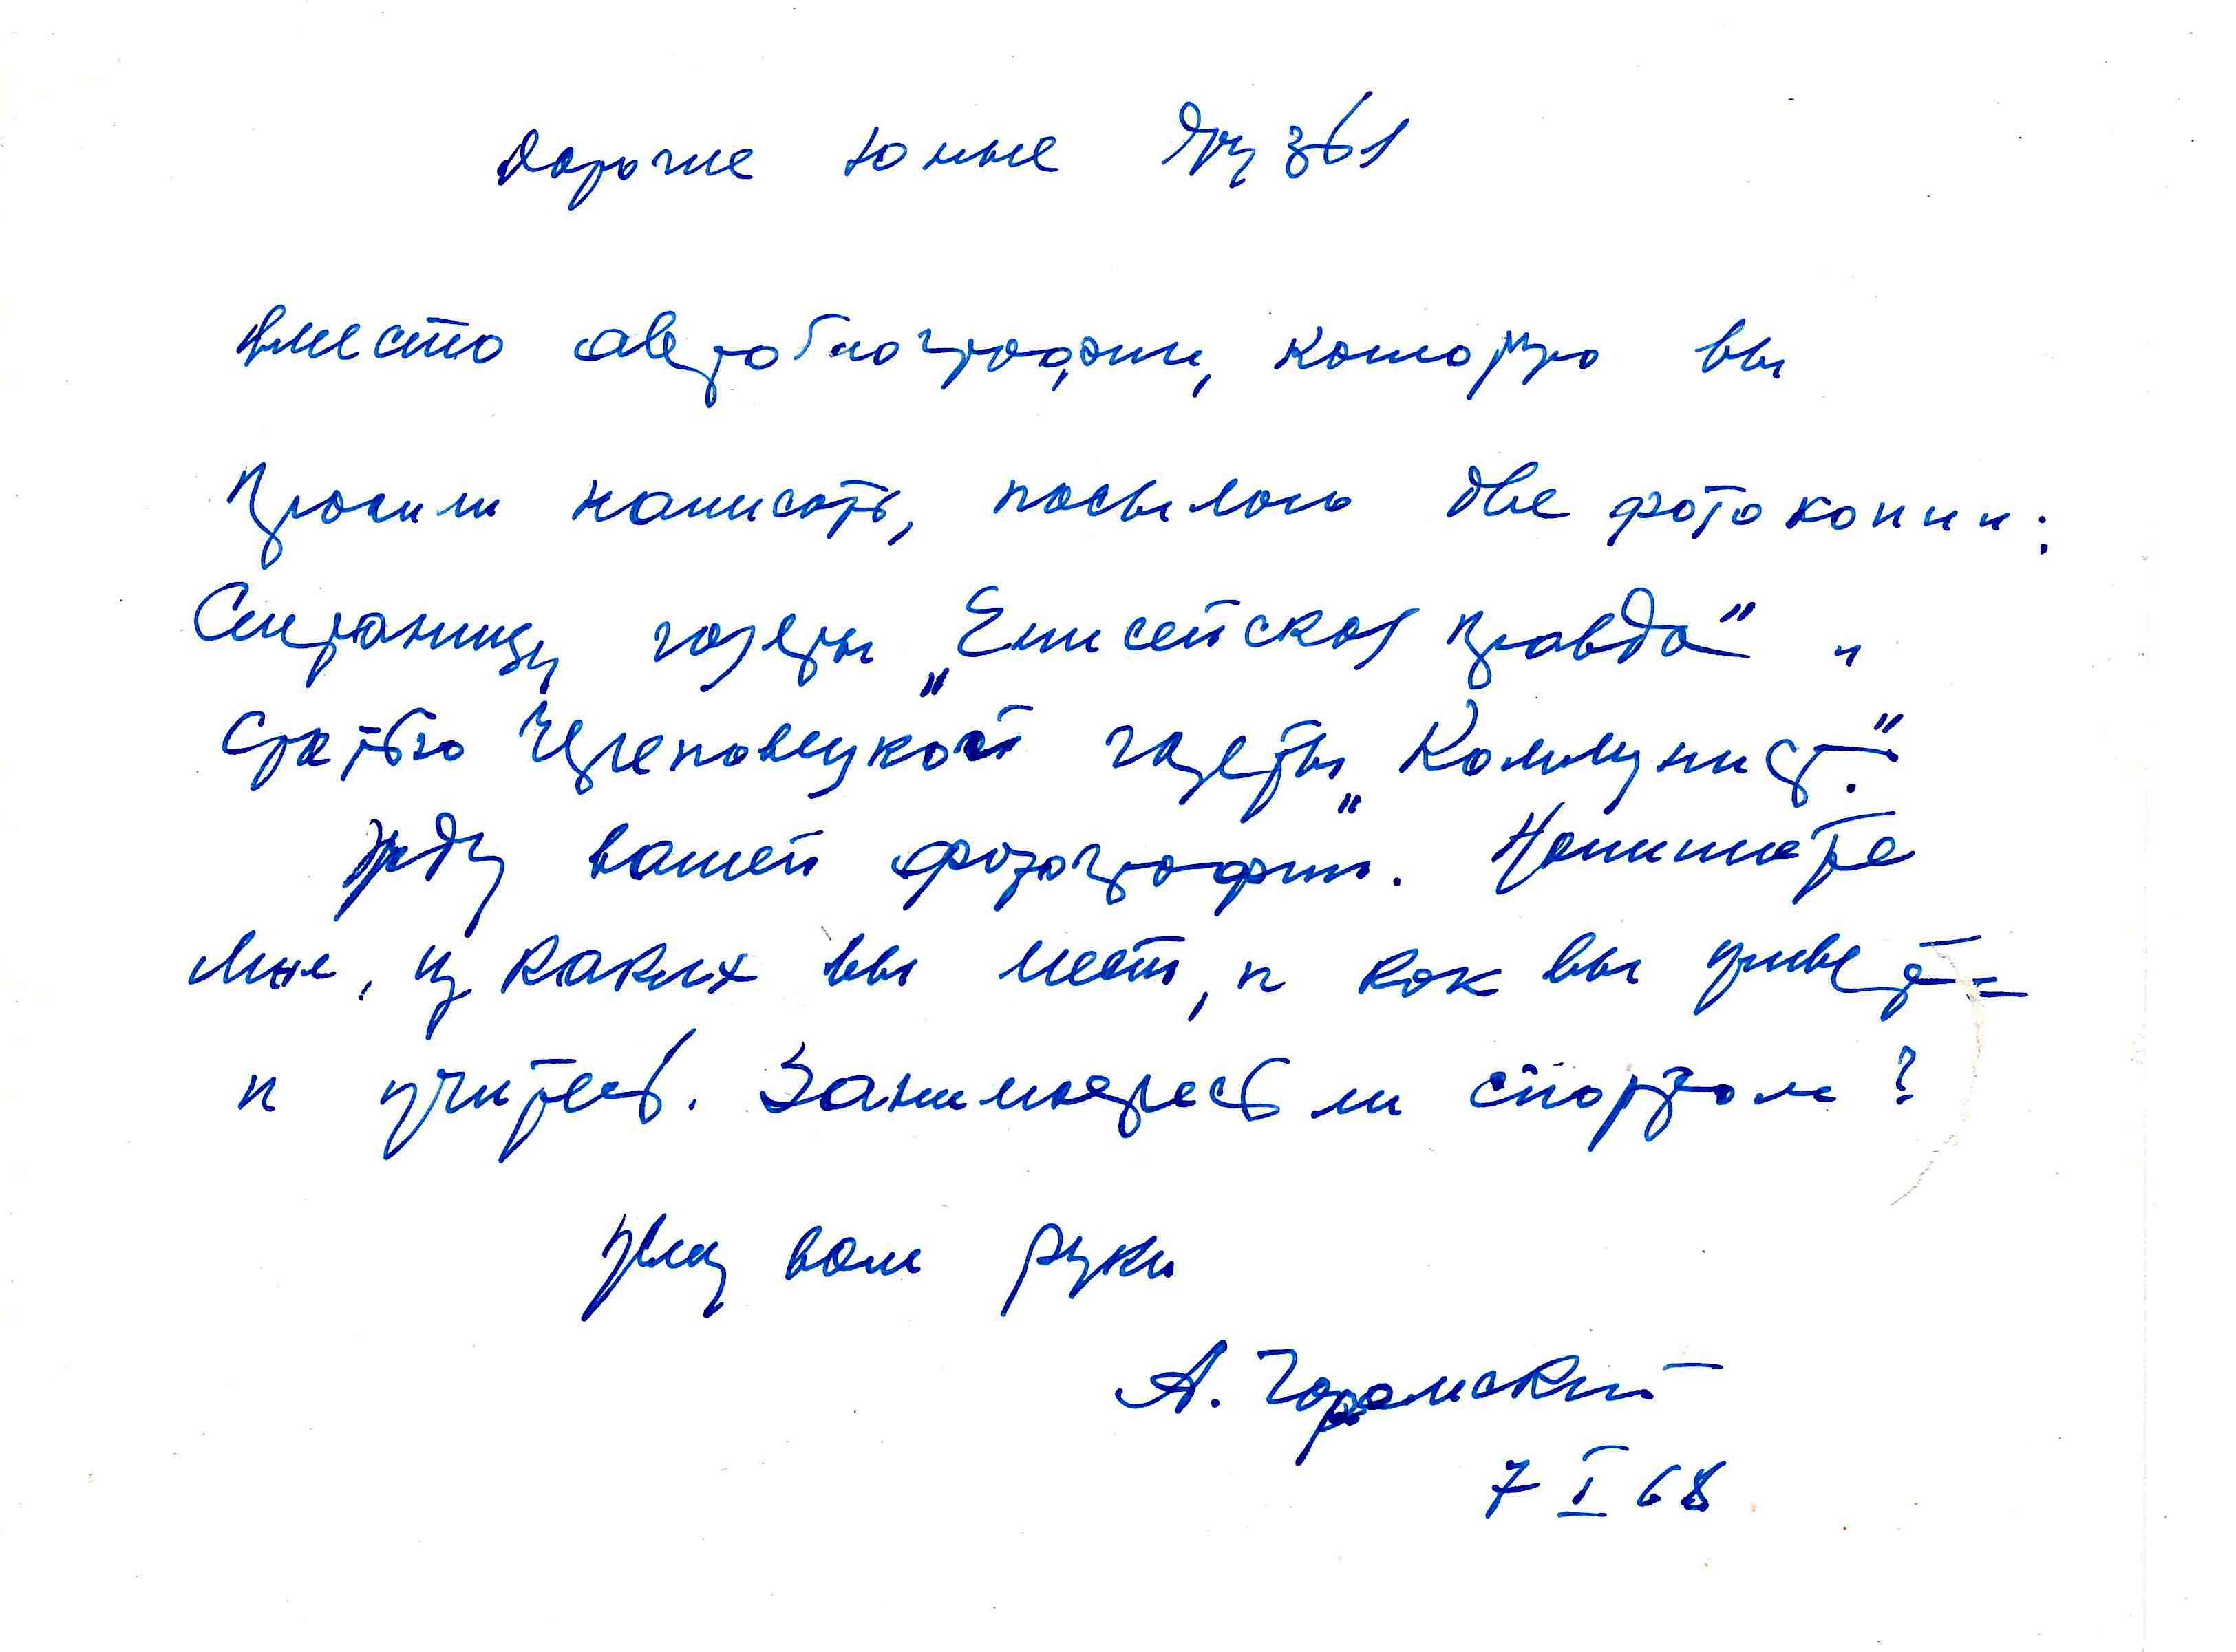 Дорогие юные друзья
вместо автобиографии, которую вы
просили написать, посылаю две фотокопии:
Страницу газеты „Енисейская правда" и
статью Череповецкой газеты „Коммунист".
Жду вашей фотографии. Напишите
мне, из каких вы мест, и как вы живете
и учитесь. Занимаетесь ли спортом?
Жму вам руки
А.
7 I 68